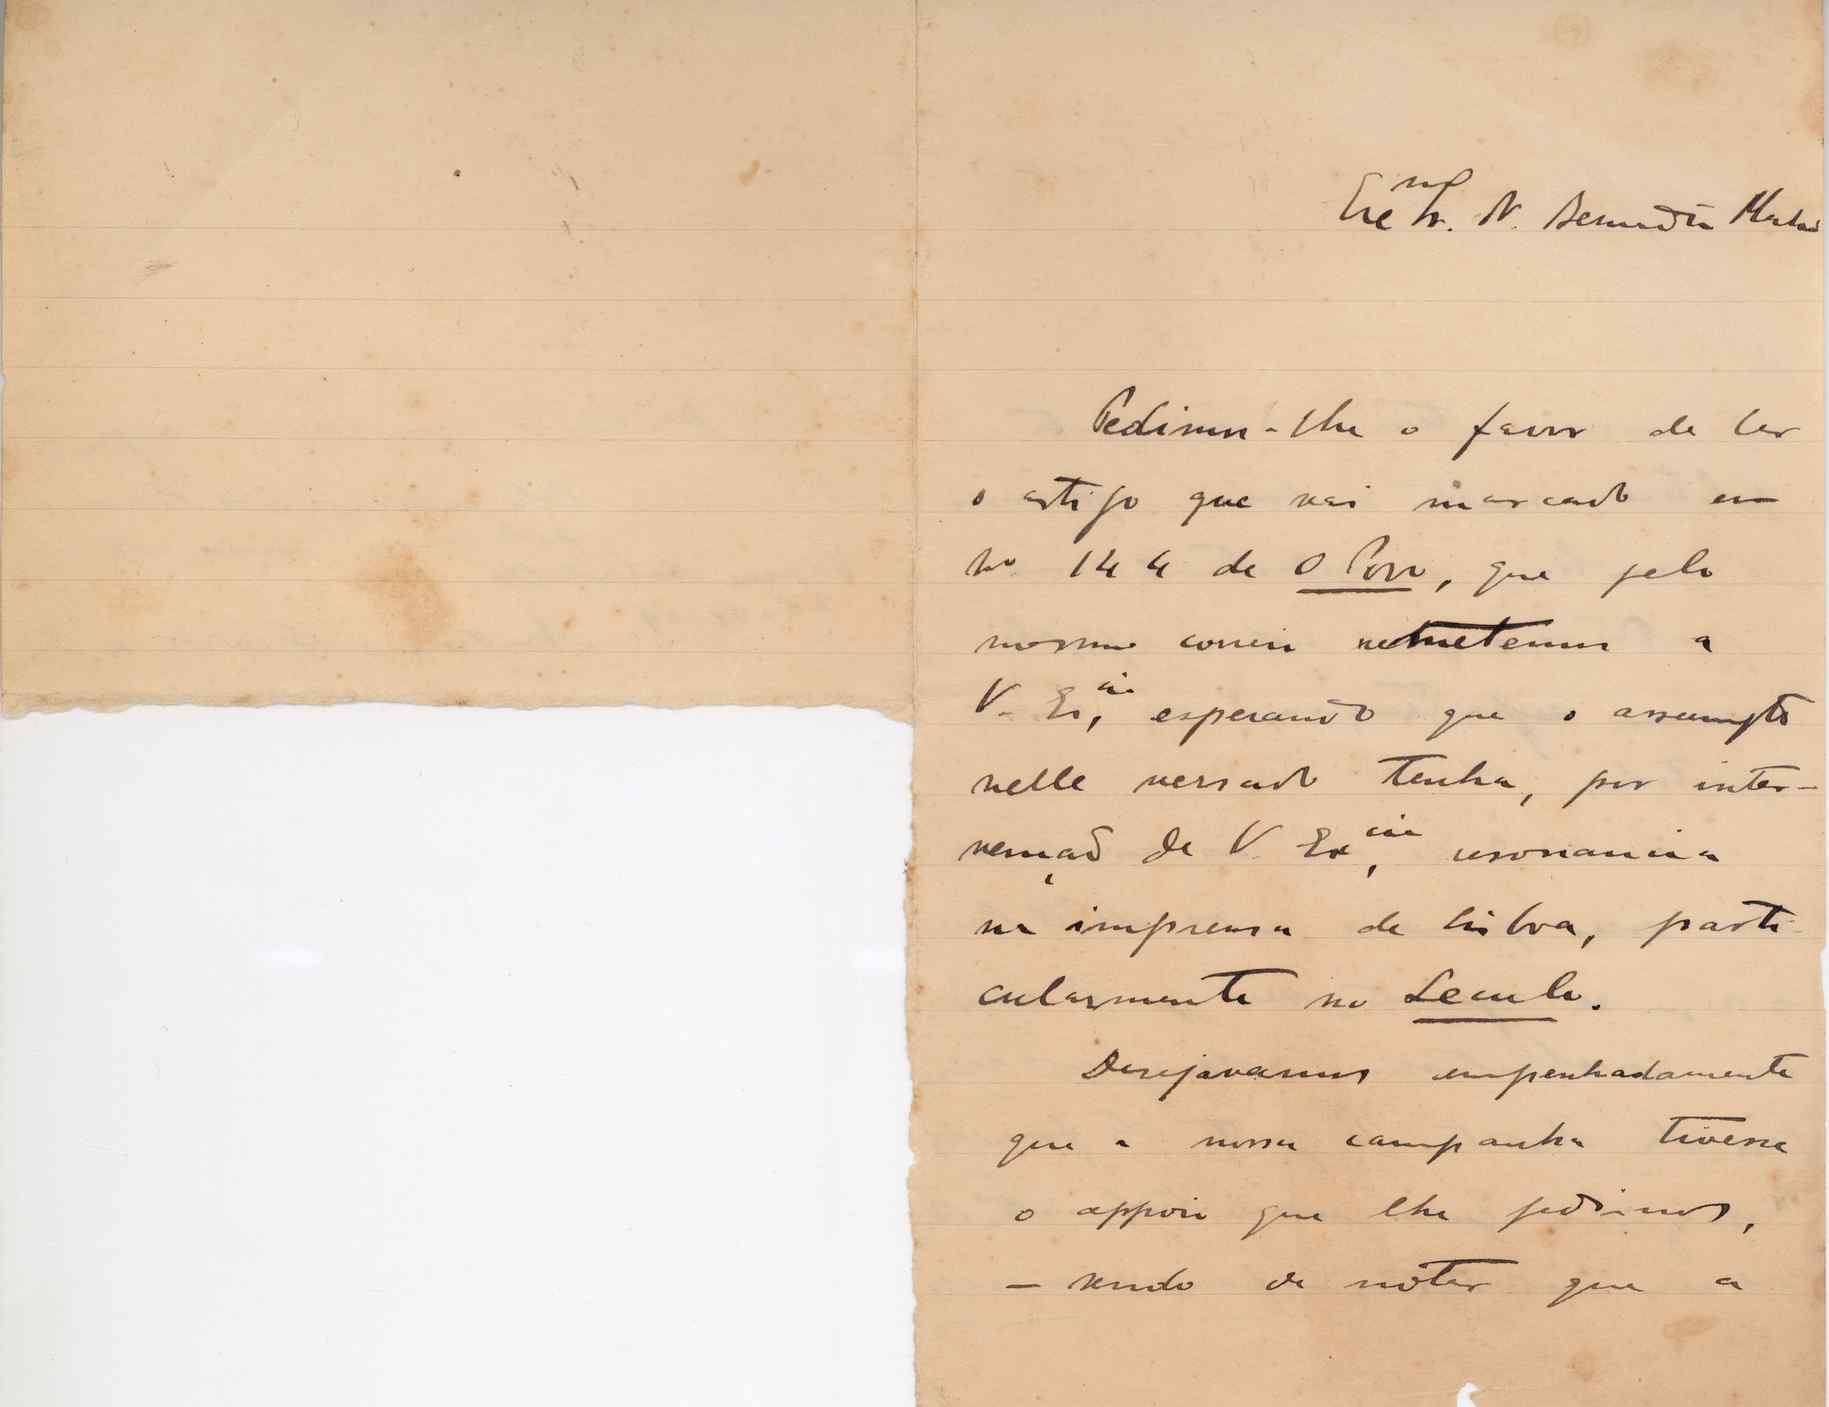 Exmo Sr. Dr. Bernardino Machado
Pedimos-lhe o favor de ler
o artigo que vai marcado em
no 144 de O Povo, que pelo
mesmo correio remettemos a
V. Ex.cia, esperando que o assumpto
nelle versado tenha, por inter-
venção de V. Ex.cia, resonancia
na imprensa de Lisboa, parti
cularmente no Seculo.
Desejavamos empenhadamente
que a nossa campanha tivesse
o appoio que lhe pedimos,
— sendo de notar que a